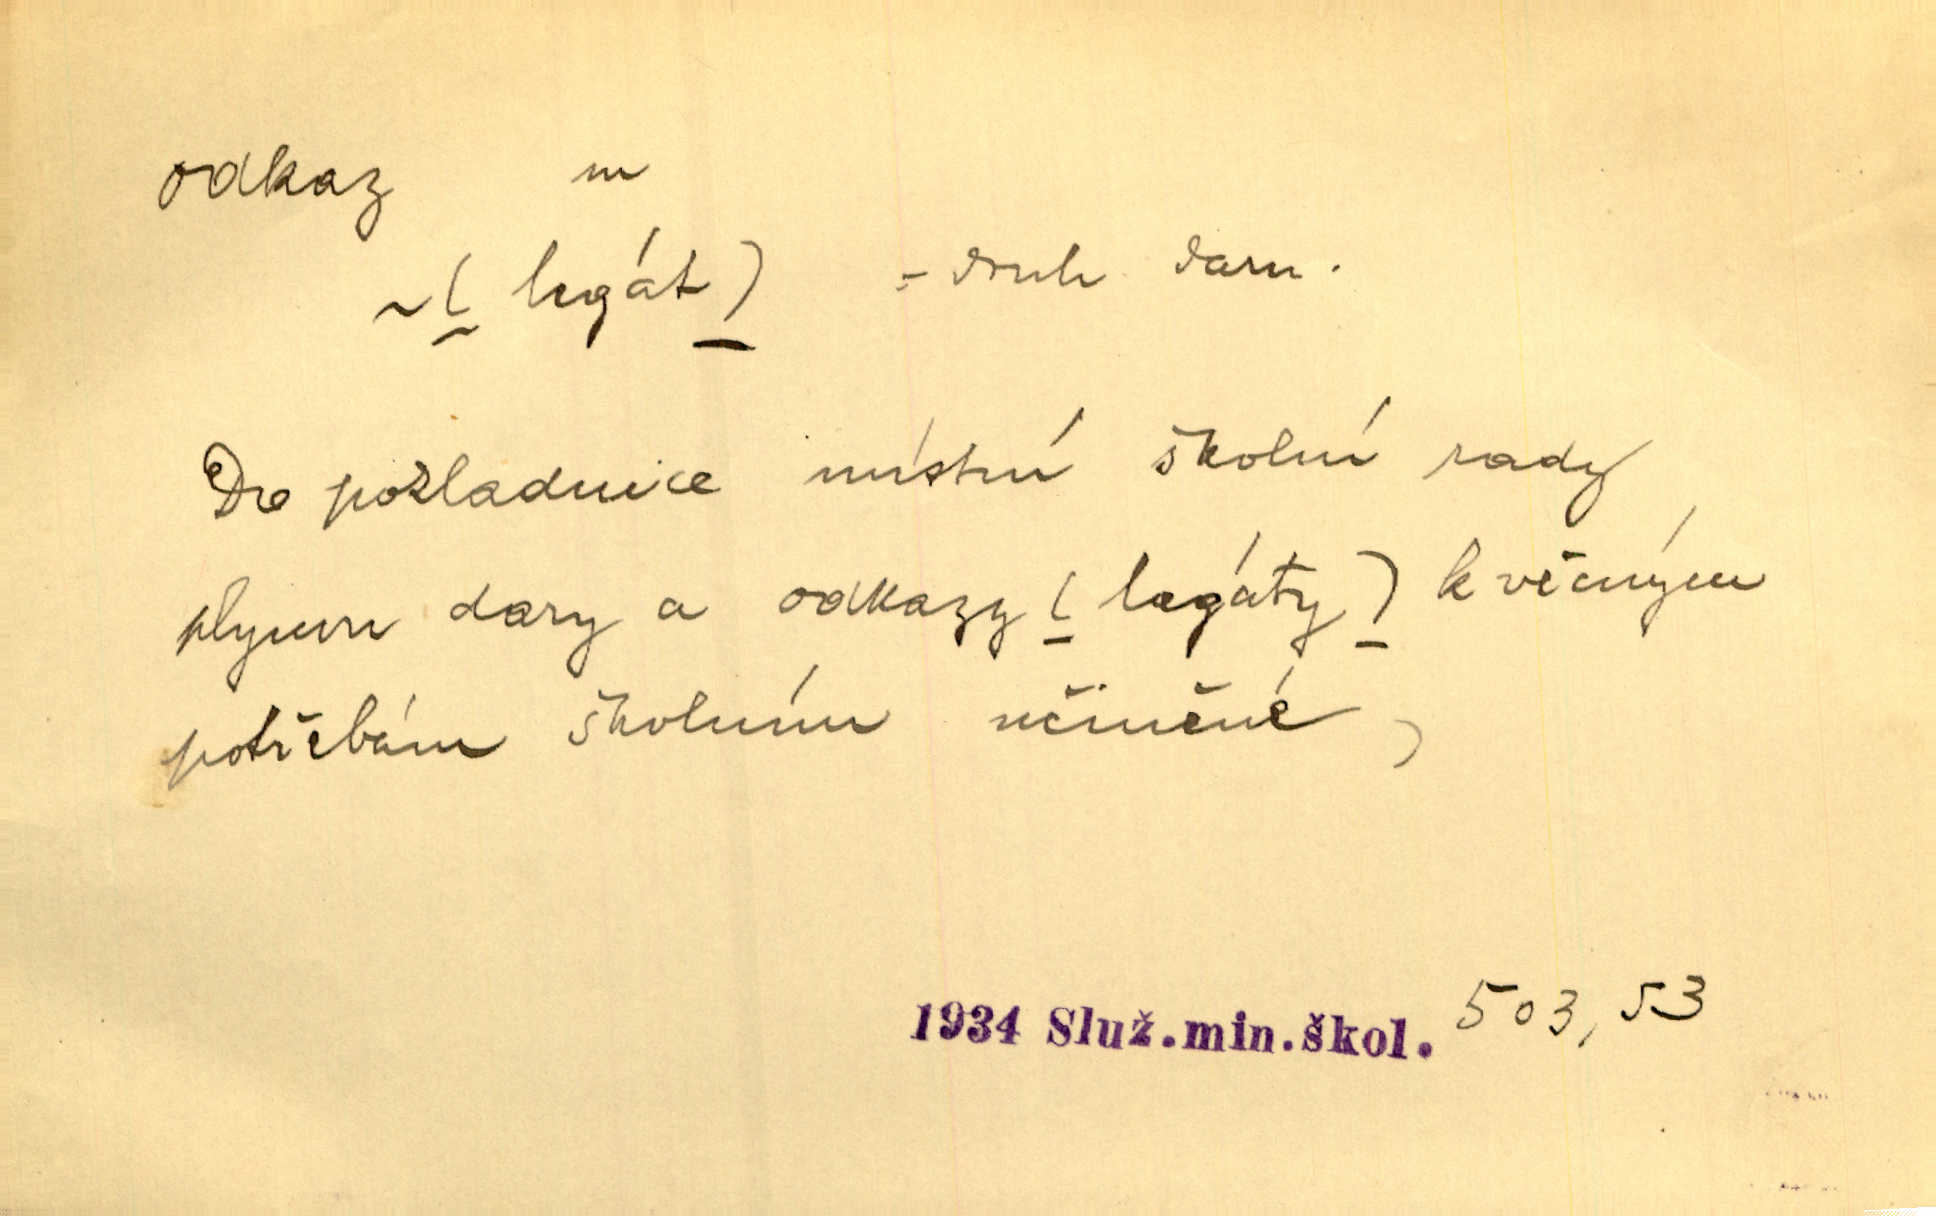 odkaz m
~ ( legát ) = druh daru.
Do pokladnice místní školní rady
plynou dary a odkazy ( legáty ) k věcným
potřebám školním učiněné,
1934 Služ.min.škol. 503, 53